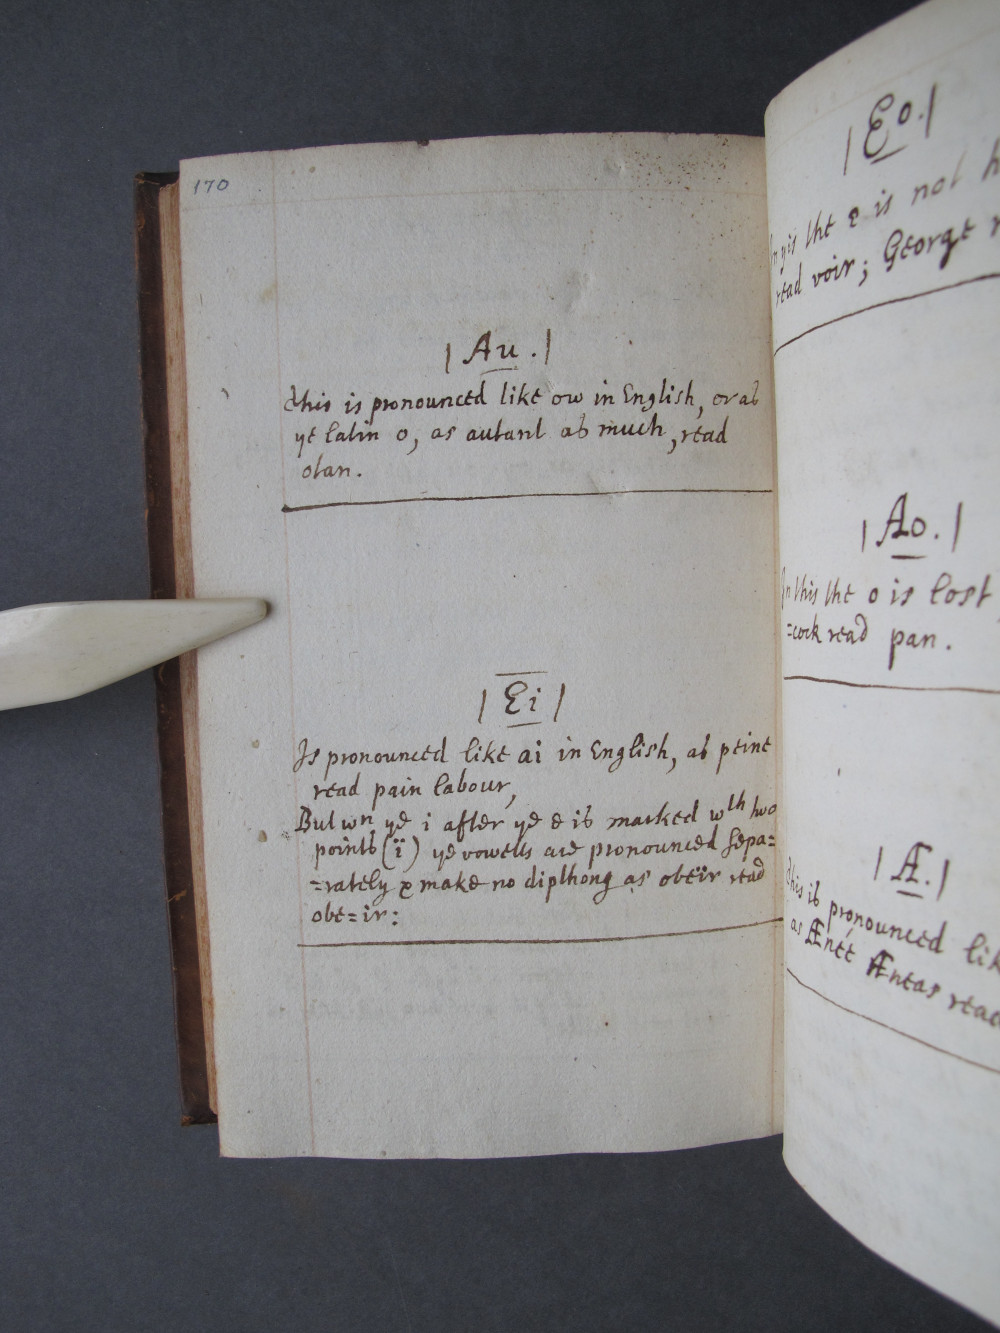 170
|Au.|
This is pronounced like ow in English, or as
ye latin o, as autant as much, read
otan.
|Ei|
Is pronounced like ai in English, as peine
read pain labour,
But wn ye i after ye e is marked wth two
points (ï) ye vowells are pronounced sepa=
=rately & make no dipthong as obeïr read
obe=ir:
|Eo.|
In yis the e is not
read voir; George
|Ao.|
In this the o is lost
=cock read pan.
|Æ.|
This is pronounced lik
as Ænée Æneas read